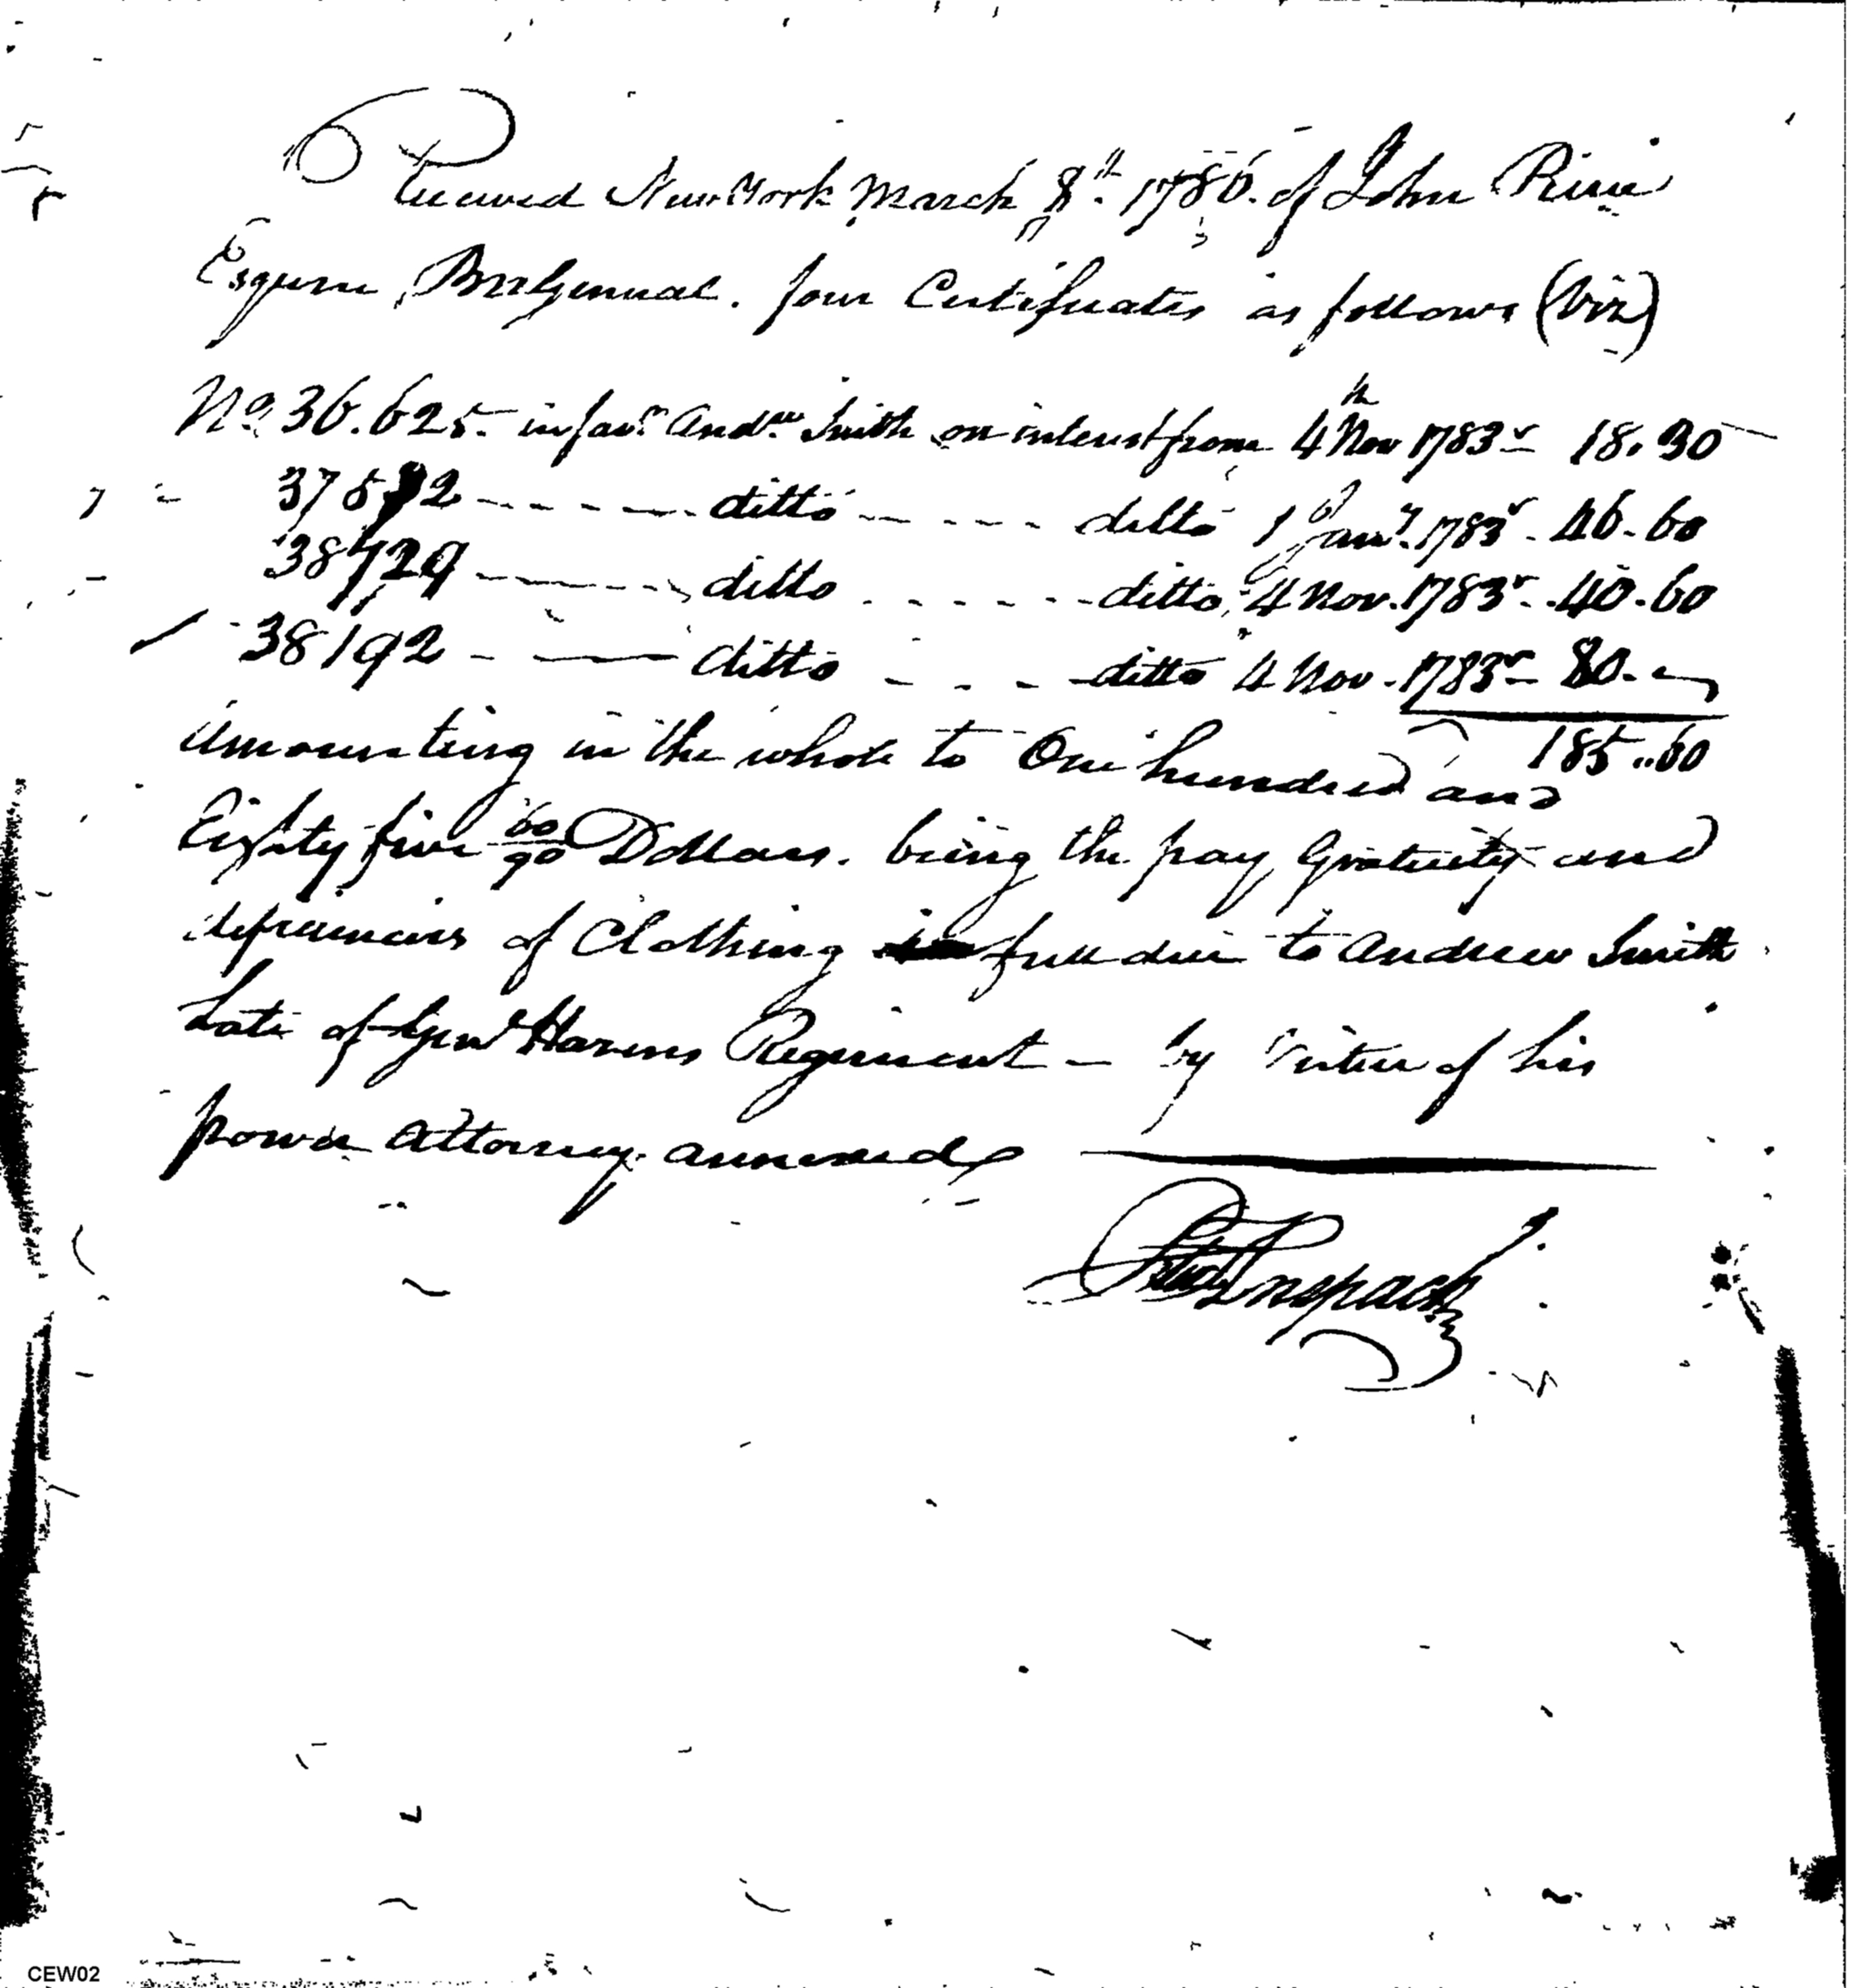 Received New York March 8th. 1786. of John Pierce
Esquire, PMrGeneral. four Certificates as follows (Viz)
No. 36.625. in favr. Andrw. Smith on interest from 4th Nov 1783 - 18. 30
37872 - - - - - - ditto - - - - - ditto 1 Jany. 1783 - 46. 60
38729 - - - - ditto . . . . . . ditto, 4 Nov. 1783 - 40. 60
38192 - - ditto - - - ditto 4 Nov. 1783 - 80. -
185..60
Amounting in the whole to One hundred and
Eighty five 60/90 Dollars. being the pay Gratuity and
deficiencies of Clothing in full due to Andrew Smith
Late of Genl Hazens Regiment - by Virtue of his
power Attorney annexed
Anspach
CEW02